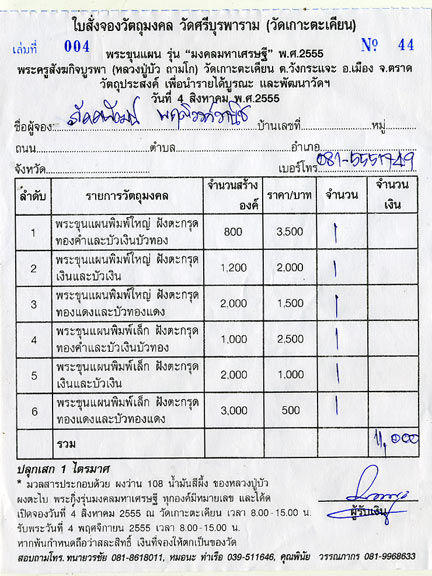 ใบสั่งจองวัตถุมงคล วัดศรีบุรพาราม (วัดเกาะตะเคียน)
เล่มที่ 004 Nº 44
พระขุนแผน รุ่น "มงคลมหาเศรษฐี" พ.ศ.2555
พระครูสังฆกิจบูรพา (หลวงปู่บัว ถามโก) วัดเกาะตะเคียน ต.วังกระแจะ อ.เมือง จ.ตราด
วัตถุประสงค์ เพื่อนำรายได้บูรณะ และพัฒนาวัดฯ
วันที่ 4 สิงหาคม พ.ศ.2555
ชื่อผู้จอง บ้านเลขที่ หมู่
ถนน ตำบล อำเภอ
จังหวัด เบอร์โทร 081-5551949
ลำดับ รายการวัตถุมงคล จำนวนสร้าง องค์ ราคา/บาท จำนวน จำนวน เงิน
1 พระขุนแผนพิมพ์ใหญ่ ฝังตะกรุด 800 3.500 1
ทองคำและบัวเงินบัวทอง
2 พระขุนแผนพิมพ์ใหญ่ ฝังตะกรุด 1,200 2,000 1
เงินและบัวเงิน
3 พระขุนแผนพิมพ์ใหญ่ ฝังตะกรุด 2.000 1,500 1
ทองแดงและบัวทองแดง
4 พระขุนแผนพิมพ์เล็ก ฝังตะกรุด 1.000 2.500 1
ทองคำและบัวเงินบัวทอง
5 พระขุนแผนพิมพ์เล็ก ฝังตะกรุด 2.000 1.000 1
เงินและบัวเงิน
6 พระขุนแผนพิมพ์เล็ก ฝังตะกรุด 3,000 500 1
ทองแดงและบัวทองแดง
รวม 11,000
ปลุกเสก 1 ไตรมาศ
* มวลสารประกอบด้วย ผงว่าน 108 น้ำมันสีผึ้ง ของหลวงปู่บัว
ผงตะไบ พระกริ่งรุ่นมงคลมหาเศรษฐี ทุกองค์มีหมายเลข และโค้ด
เปิดจองวันที่ 4 สิงหาคม 2555 ณ วัดเกาะตะเคียน เวลา 8.00-15.00 น.
ผู้รับเงิน
รับพระวันที่ 4 พฤศจิกายน 2555 เวลา 8.00-15.00 น.
หากพ้นกำหนดถือว่าสละสิทธิ์ เงินที่จองให้ตกเป็นของวัด
สอบถามโทร. ทนายวรชัย 081-8618011, หมอนะ ท่าเรือ 039-511646, คุณพินัย วรรณภากร 081-9968633